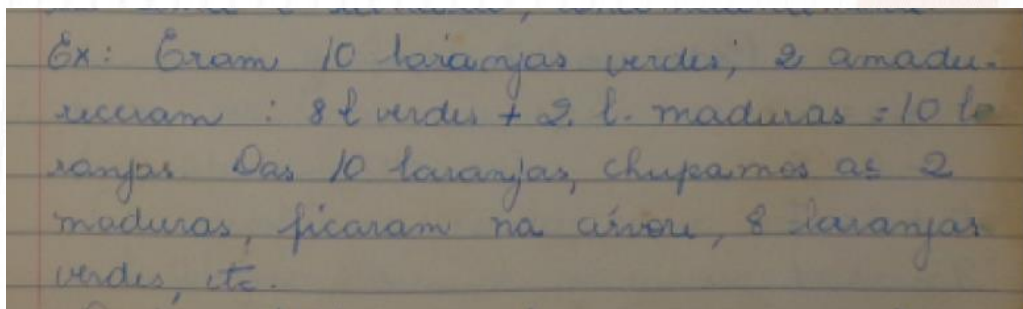 Ex: Eram 10 laranjas verdes; 2 amadu-
receram : 8 l verdes + 2. l. maduras = 10 la
ranjas. Das 10 laranjas, chupamos as 2
maduras, ficaram na árvore, 8 laranjas
verdes, etc.